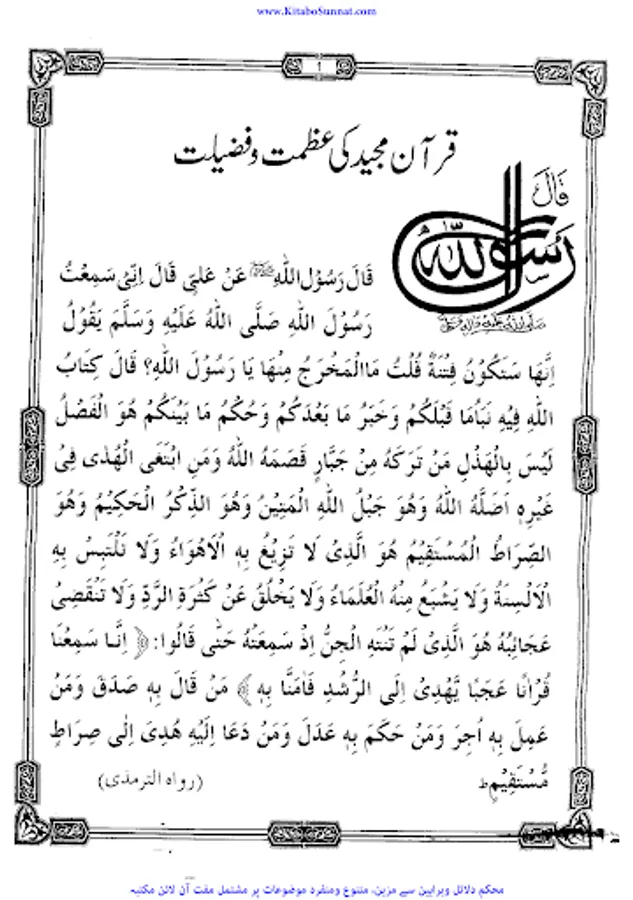 www.KitaboSunnat.com
۱
قرآن مجید کی عظمت و فضیلت
قَالَ
رَسُوْلُ اللّٰهِ
صَلَّى اللّٰهُ عَلَيْهِ وَاٰلِهٖ وَسَلَّمَ
قَالَ رَسُوْلُ اللّٰهِ ﷺ عَنْ عَلِيٍّ قَالَ اِنِّیْ سَمِعْتُ
رَسُوْلَ اللهِ صَلَّی اللهُ عَلَیْهِ وَسَلَّمَ یَقُوْلُ
اِنَّهَا سَتَکُوْنُ فِتْنَةٌ قُلْتُ مَاالْمَخْرَجُ مِنْهَا یَا رَسُوْلَ اللهِ؟ قَالَ کِتَابُ
اللهِ فِیْهِ نَبَأُمَا قَبْلَکُمْ وَخَبَرُ مَا بَعْدَکُمْ وَحُکْمُ مَا بَیْنَکُمْ هُوَ الْفَصْلُ
لَیْسَ بِالْهَذْلِ مَنْ تَرَکَهُ مِنْ جَبَّارٍ قَصَمَهُ اللهُ وَمَنِ ابْتَغَی الْهُدٰی فِیْ
غَیْرِهٖ اَضَلَّهُ اللهُ وَهُوَ حَبْلُ اللهِ الْمَتِیْنُ وَهُوَ الذِّکْرُ الْحَکِیْمُ وَهُوَ
الصِّرَاطُ الْمُسْتَقِیْمُ هُوَ الَّذِیْ لَا تَزِیْغُ بِهِ الْاَهْوَاءُ وَلَا تَلْتَبِسُ بِهِ
الْاَلْسِنَةُ وَلَا یَشْبَعُ مِنْهُ الْعُلَمَاءُ وَلَا یَخْلُقُ عَنْ کَثْرَةِ الرَّدِّ وَلَا تَنْقَضِیْ
عَجَائِبُهُ هُوَ الَّذِیْ لَمْ تَنْتَهِ الْجِنُّ اِذْ سَمِعَتْهُ حَتّٰی قَالُوْا: ﴿ اِنَّا سَمِعْنَا
قُرْاٰنًا عَجَبًا یَّهْدِیْ اِلَی الرُّشْدِ فَاٰمَنَّا بِهٖ﴾ مَنْ قَالَ بِهٖ صَدَقَ وَمَنْ
عَمِلَ بِهٖ اُجِرَ وَمَنْ حَکَمَ بِهٖ عَدَلَ وَمَنْ دَعَا اِلَیْهِ هُدِیَ اِلٰی صِرَاطٍ
مُّسْتَقِیْمٍ ط (رواه الترمذی)
محکم دلائل وبراہین سے مزین، متنوع ومنفرد موضوعات پر مشتمل مفت آن لائن مکتبہ